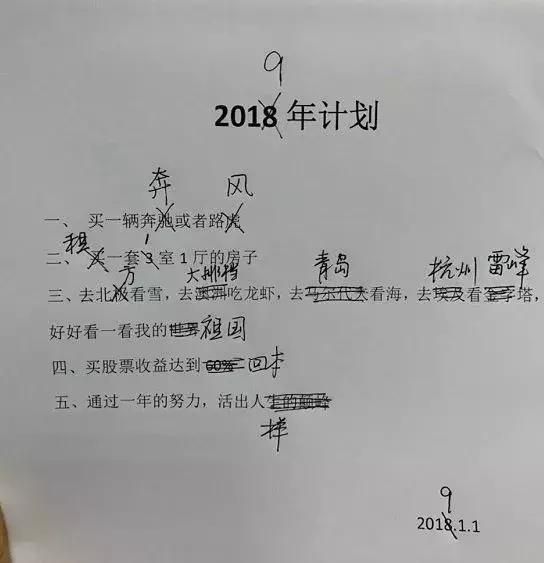 9
2018 年计划
奔 风
一、 买一辆奔驰或者路虎
租 1
二、 买一套 3 室 1 厅的房子
方 大排档 青岛 杭州 雷峰
三、去北极看雪，去澳洲吃龙虾，去马尔代夫看海，去埃及看金字塔，
好好看一看我的世界祖国
四、买股票收益达到 60% 回本
五、通过一年的努力，活出人生的巅峰
样
9
2018.1.1